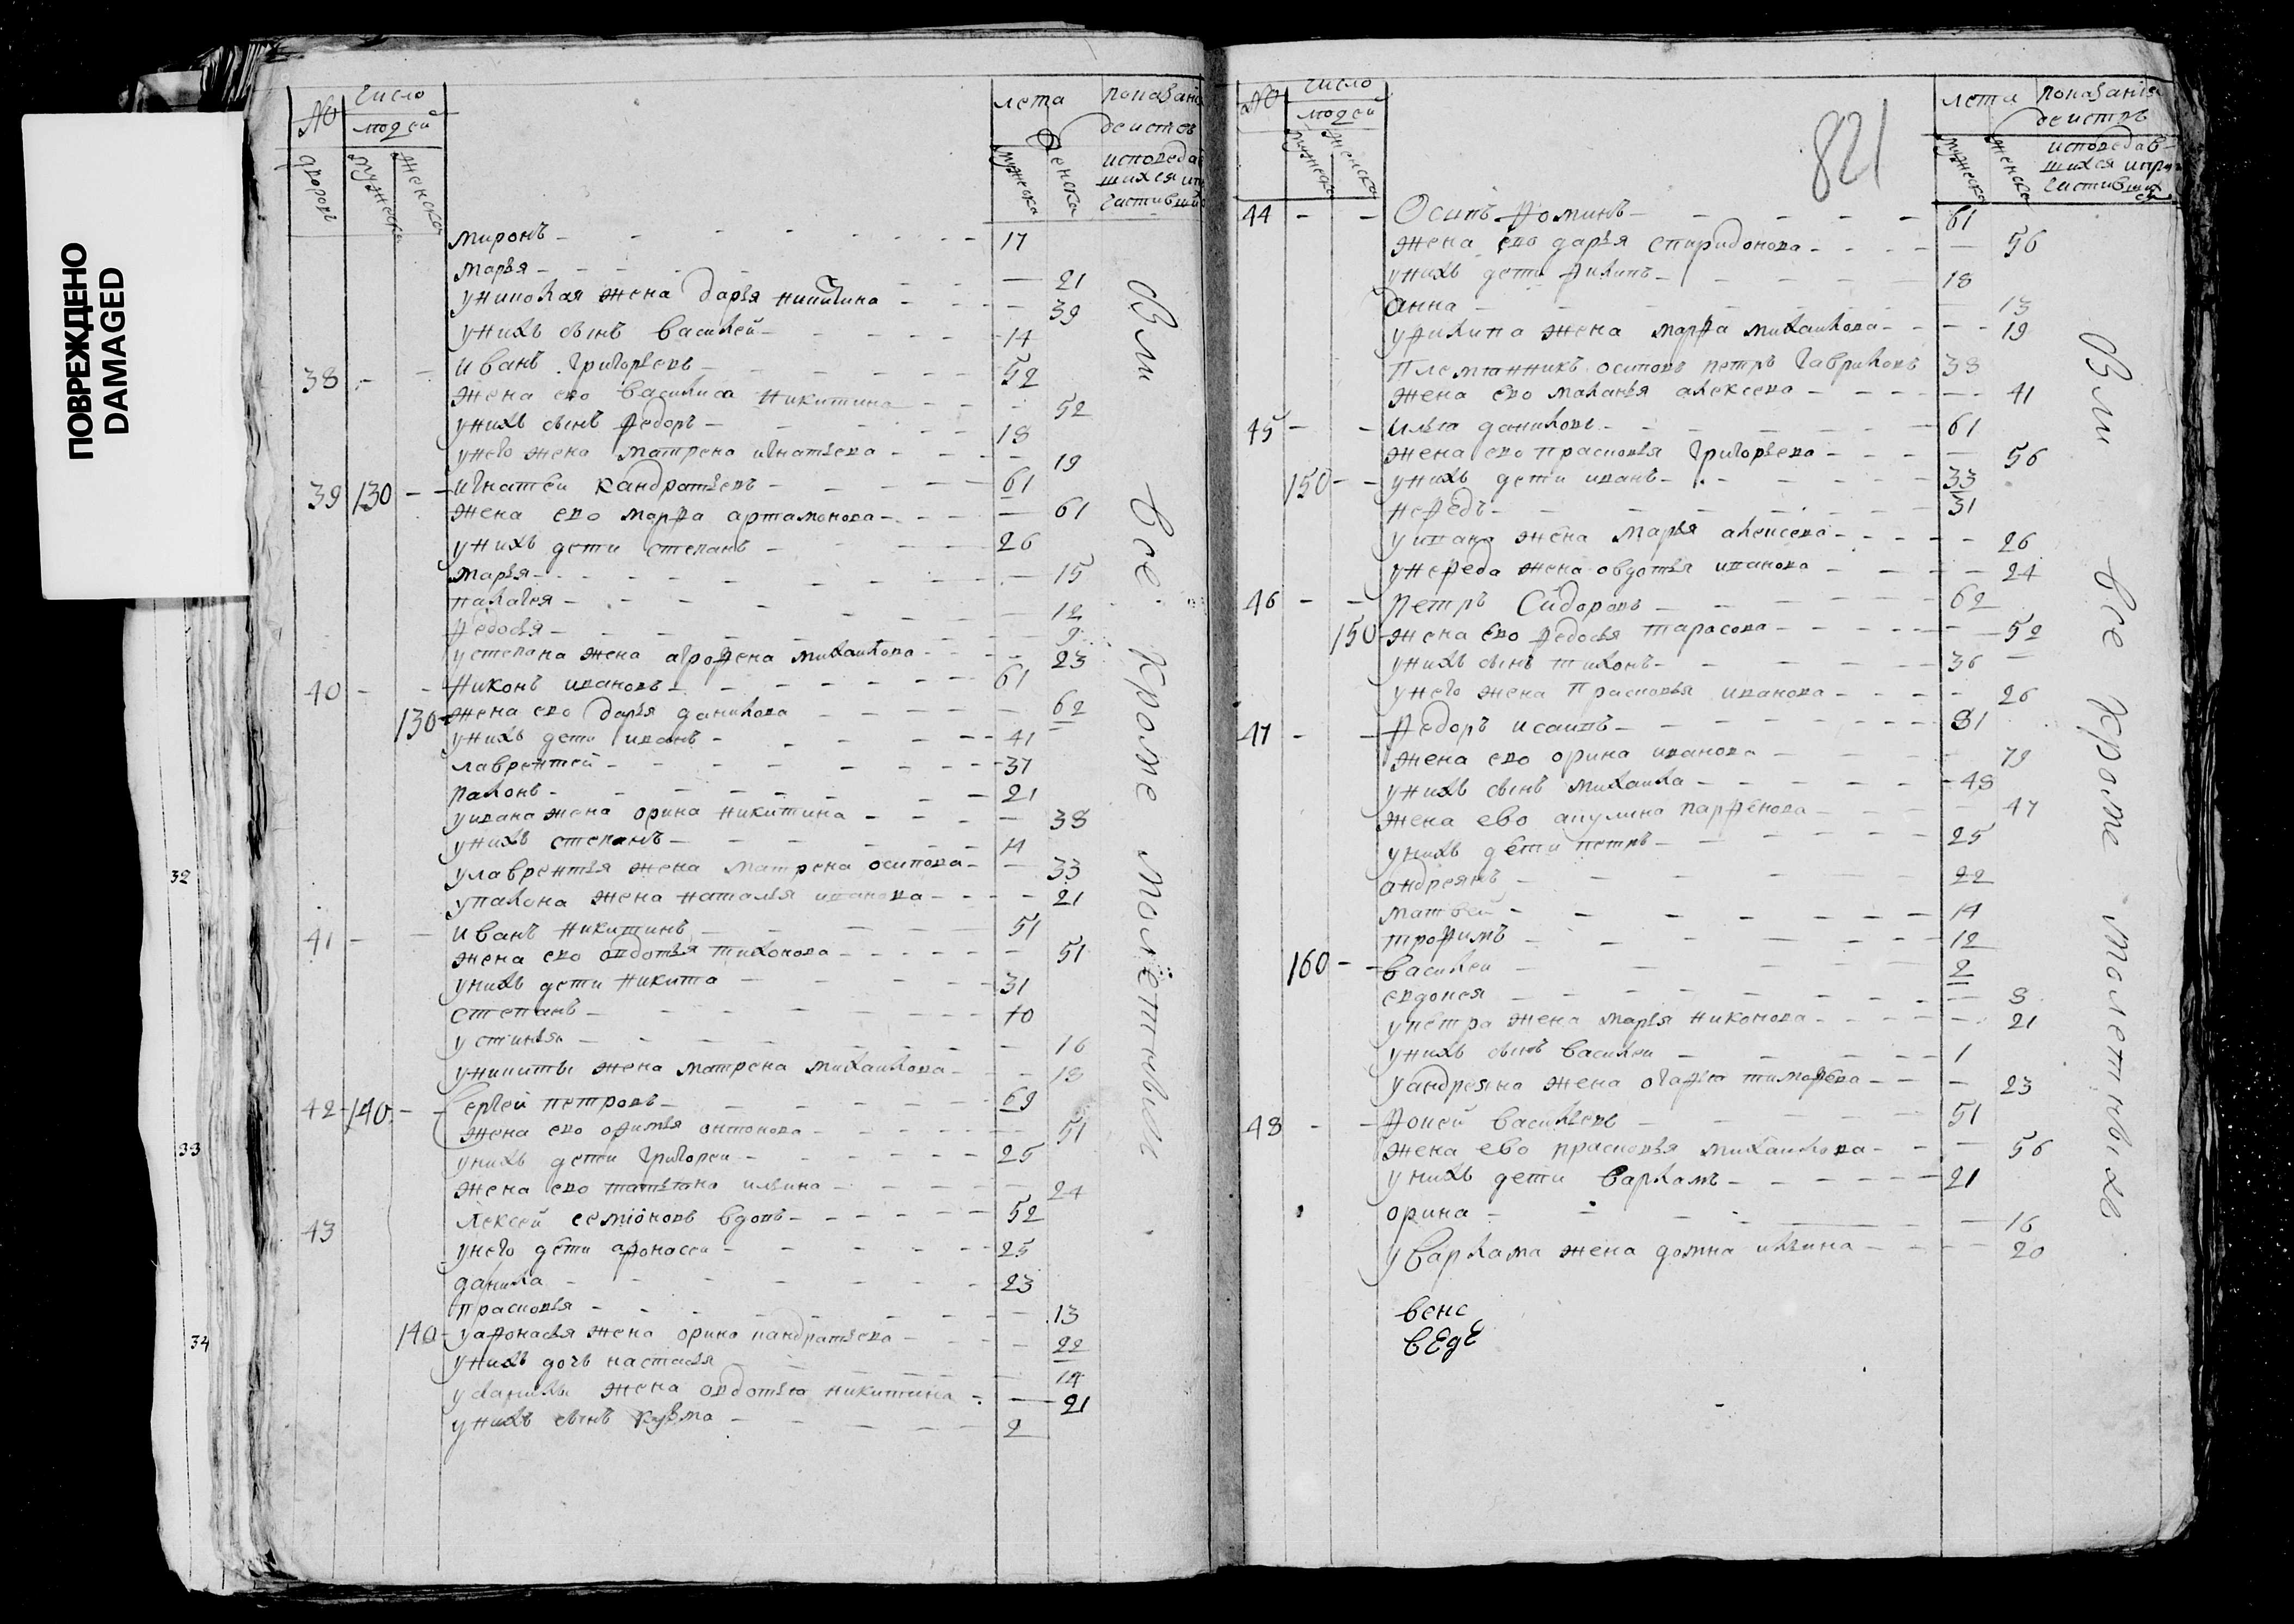 ПОВРЕЖДЕНО
DAMAGED
32
33
34
№ дворовъ
число людей
мужеска женска
лета
мужеска женска
показание
исповеда
шихся
миронъ 17
марья 21
жена дарья никитина 39
унихъ сынъ василей 14
38 иванъ григорьевъ 52
жена ево василиса никитина 52
унихъ сынъ федоръ 18
унего жена матрена игнатьева 19
39 130 игнатей кандратьевъ 61
жена ево марфа артамонова 61
унихъ дети степанъ 26
марья 15
палагея 12
федосья 9
устепана жена аграфена михаилова 23
40 никонъ ивановъ 61
130 жена ево дарья данилова 62
унихъ дети иванъ 41
лаврентей 37
филонъ 21
уивана жена орина никитина 38
унихъ степанъ 11
улаврентья жена матрена осипова 33
жена наталья иванова 21
41 иванъ никитинъ 51
жена ево овдотья тихонова 51
унихъ дети никита 31
степанъ 10
устинья 16
уникиты жена матрена михаилова 18
42 140 сергей петровъ 69
жена ево офимья онтонова 51
унихъ дети григореи 25
жена ево татьяна ильина 24
43 алексей семіоновъ вдовъ 52
унего дети афонасеи 25
данила 23
прасковья 13
140 уафонасья жена орина кандратьева 22
унихъ дочь настасья
уданилы жена овдотья никитина 21
унихъ сынъ кузма 2
Были все кроме малетныхъ
821
№
число
людей
мужеска женска
лета
мужеска женска
показания
исповедав
шихся ипри
частивших
ся
44 Осипъ фоминъ 61
жена ево дарья спиридонова 56
унихъ дети филипъ 18
анна 13
уфилипа жена марфа михаилова 19
племянникъ осиповъ петръ гавриловъ 38
жена ево маланья алексеева 41
45 илья даниловъ 61
жена ево прасковья григорьева 56
150 унихъ дети иванъ 33
нефедъ 31
уивана жена марья алексеева 26
унефеда жена овдотья иванова 24
46 петръ сидоровъ 62
150 жена ево федосья тарасова 52
унихъ сынъ тихонъ 36
унего жена прасковья иванова 26
47 федоръ исаинъ 81
жена ево орина иванова 79
унихъ сынъ михаила 48
жена ево акулина парфенова 47
унихъ дети петръ 25
андреянъ 22
матвеи 14
трофимъ 12
160 василеи 2
евдокея 8
упетра жена марья никонова 21
унихъ сынъ василеи 1
уандреяна жена огафья тимофеева 23
48 фокей васильевъ 51
жена ево прасковья михаилова 56
унихъ дети варламъ 21
орина 16
уварлама жена домна ильина 20
Были все кроме малетныхъ
венс
веде